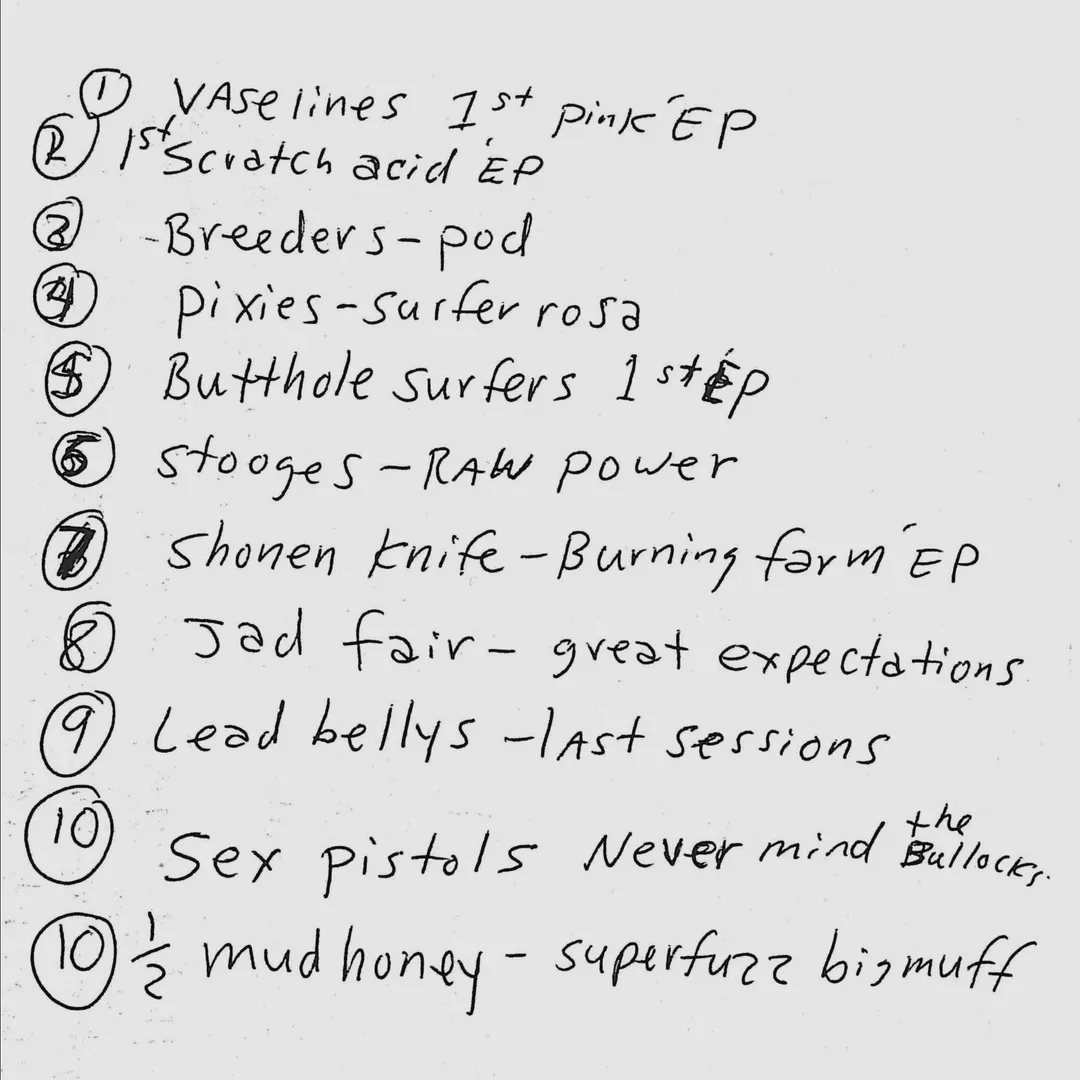 ① VAselines 1st pink EP
② 1st Scratch acid EP
③ -Breeders-pod
④ pixies-surfer rosa
⑤ Butthole surfers 1st EP
⑥ stooges-RAW power
⑦ Shonen knife-Burning farm EP
⑧ Jad fair-great expectations
⑨ Lead bellys-lAst sessions
⑩ Sex pistols Never mind the Bullocks.
⑩ 1/2 mudhoney-superfuzz bigmuff